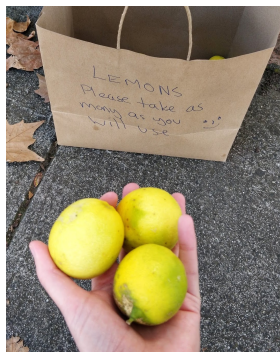 LEMONS
Please take as
many as you
will use